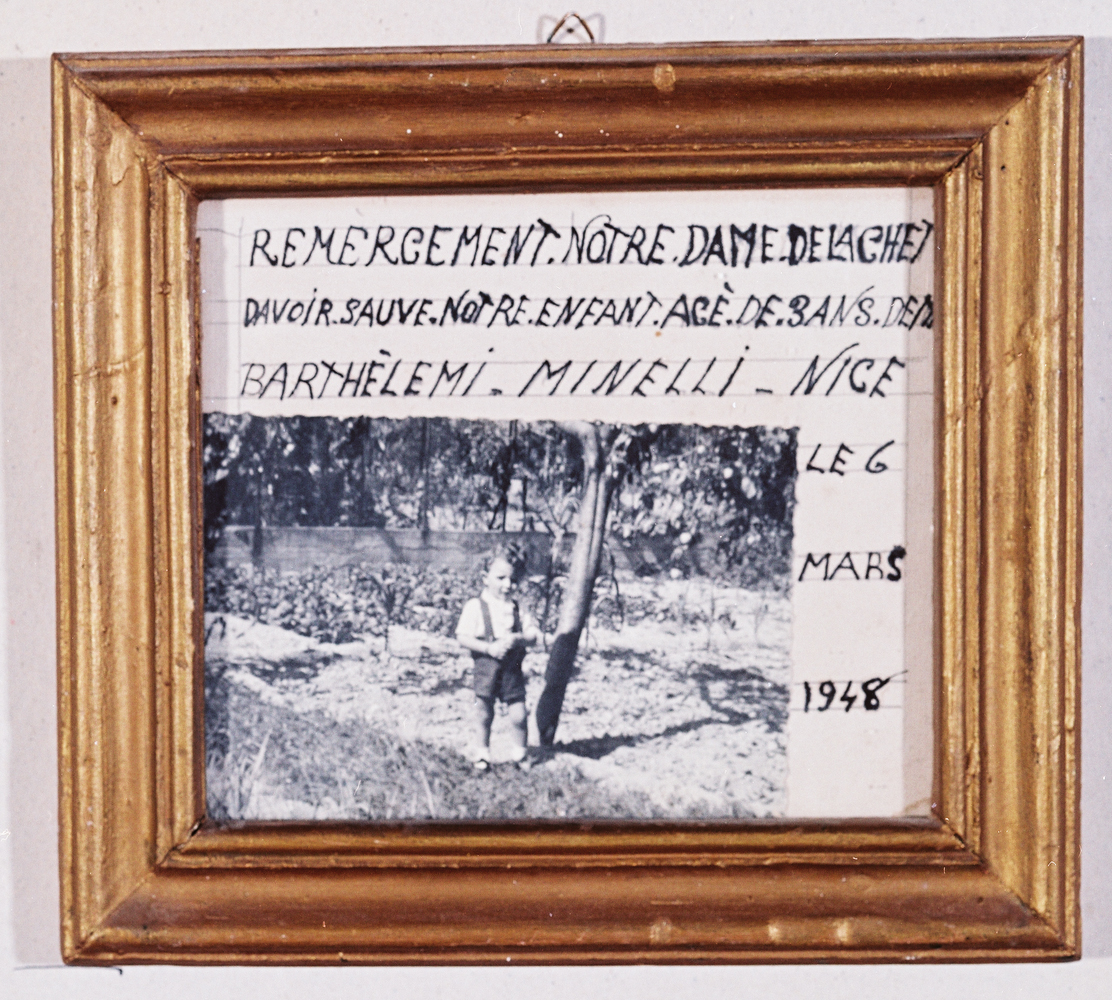 REMERGEMENT. NOTRE. DAME. DELAGHET
DAVOiR. SAUVE. NOTRE. ENFANT. AGÈ. DE. 3 ANS.
BARTHÈLEMi - MINELLi - NiCE
LE 6
MARS
1948